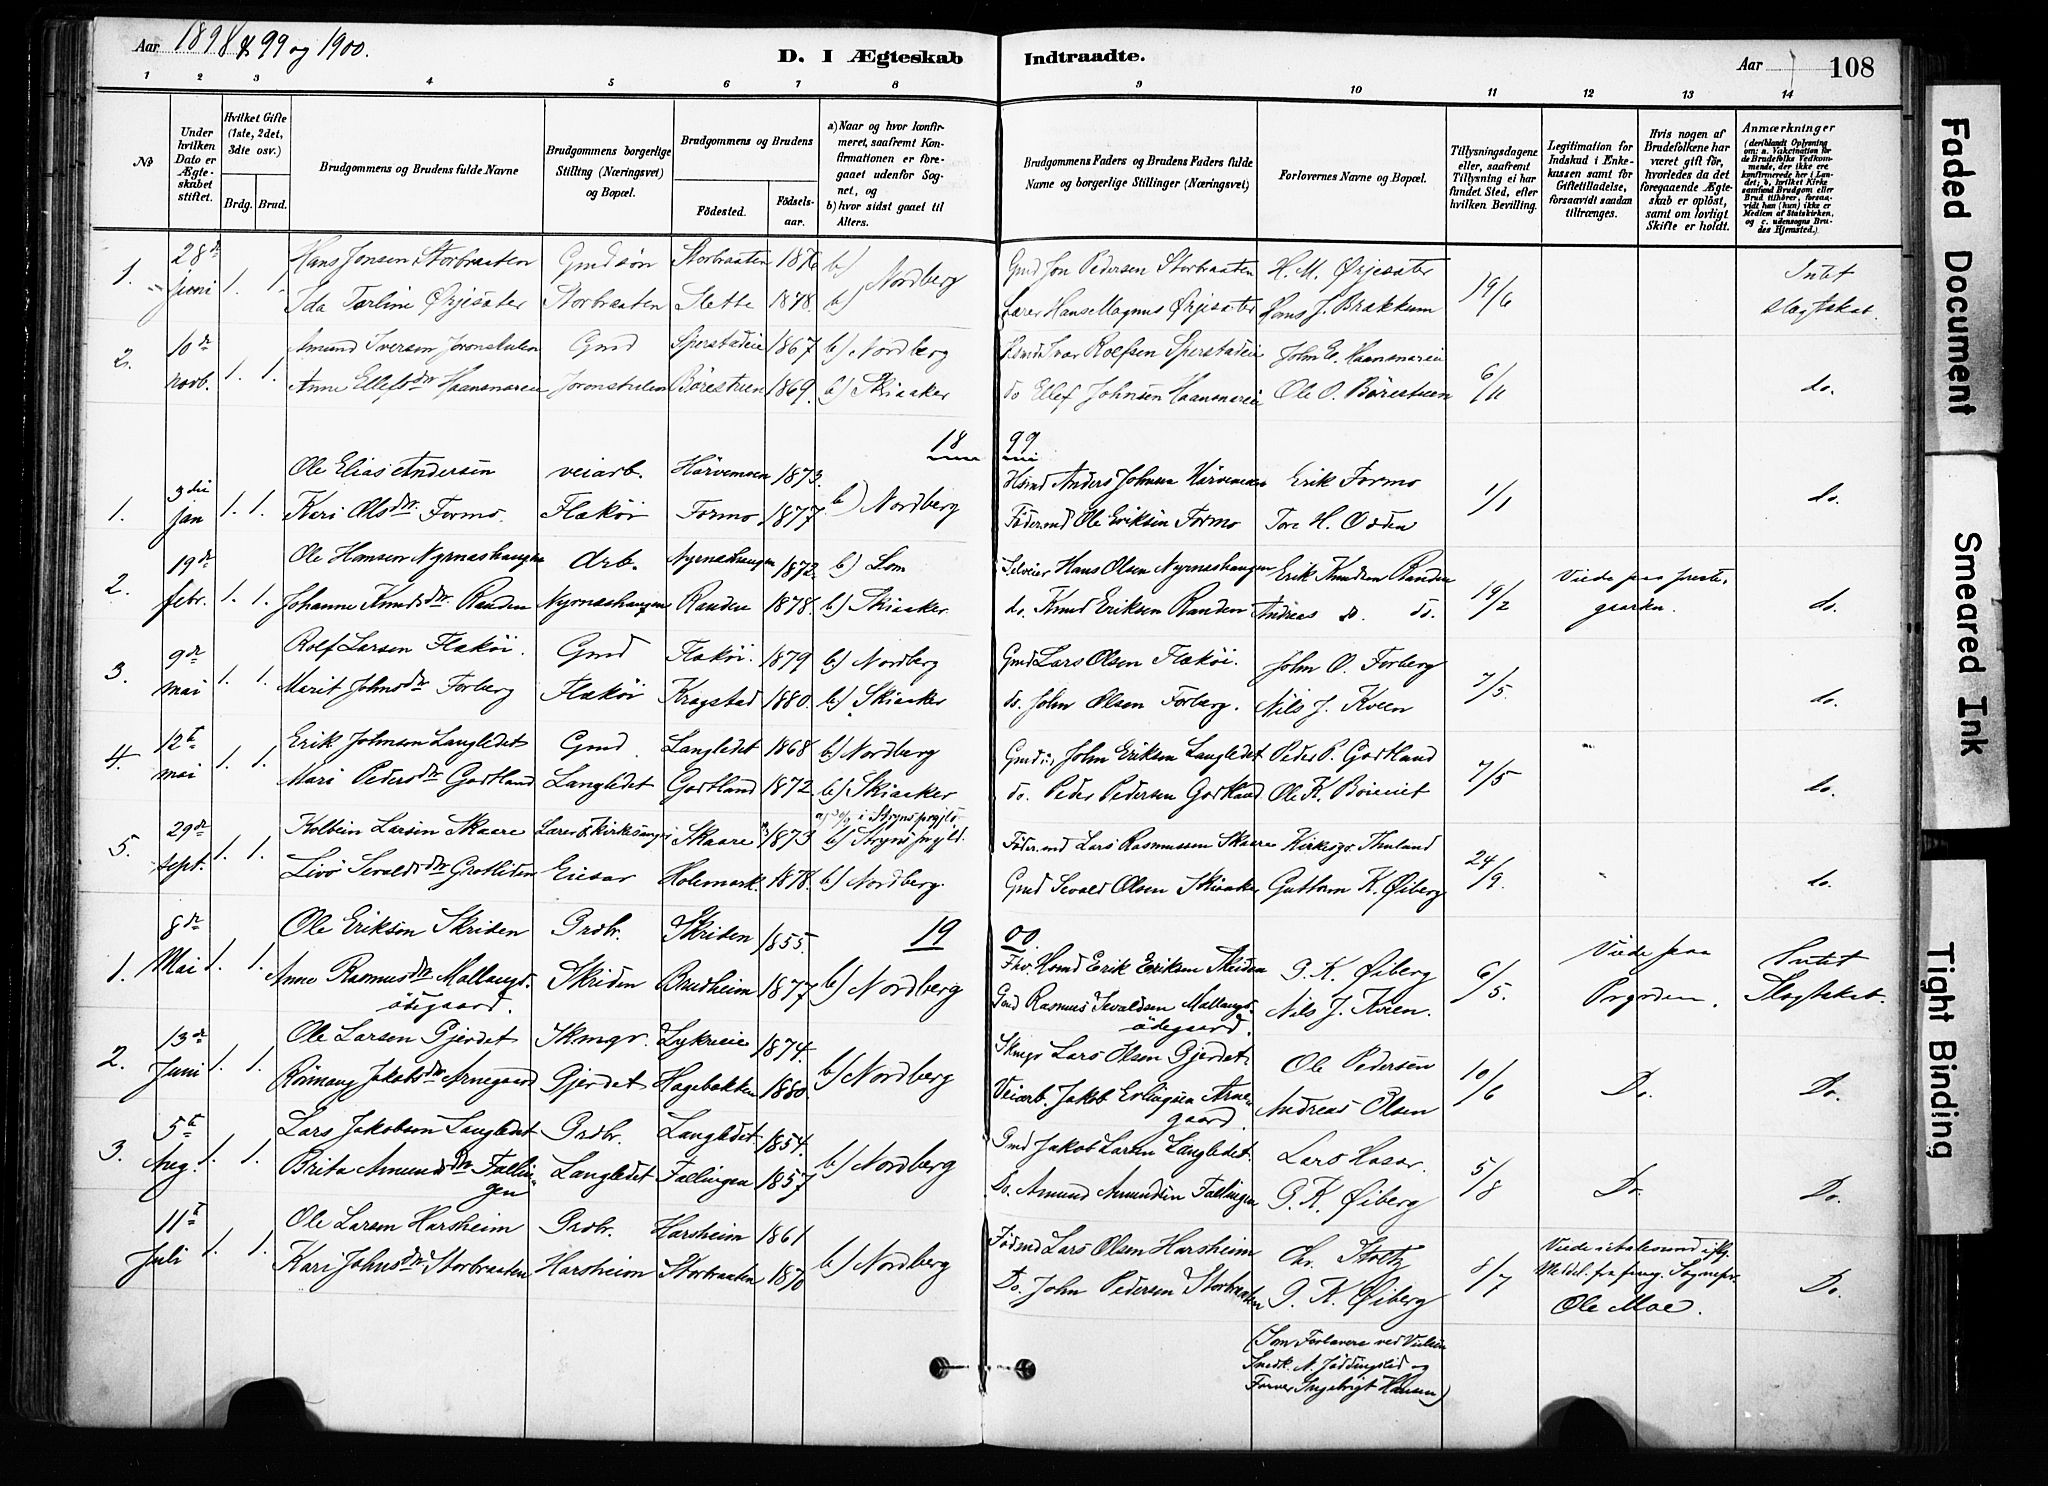 Aar 1898 & 99 og 1900.
D. I Ægteskab Indtraadte.
Aar 108
1 2 3 4 5 6 7 8 9 10 11 12 13 14
No
Under hvilken Dato er Ægteskabet stiftet.
Hvilket Gifte (1ste, 2det, 3die osv.)
Brdg. Brud.
Brudgommens og Brudens fulde Navne
Brudgommens borgerlige Stilling (Næringsvei) og Bopæl.
Brudgommens og Brudens
Födested. Födselsaar.
a) Naar og hvor konfirmeret, saafremt Konfirmationen er foregaaet udenfor Sognet, og
b) hvor sidst gaaet til Alters.
Brudgommens Faders og Brudens Faders fulde Navne og borgerlige Stillinger (Næringsvei)
Forlovernes Navne og Bopæl.
Tillysningsdagene eller, saafremt Tillysning ei har fundet Sted, efter hvilken Bevilling.
Legitimation for Indskud i Enkekassen samt for Giftetilladelse, forsaavidt saadan tiltrænges.
Hvis nogen af Brudefolkene har været gift för, hvorledes da det foregaaende Ægteskab er oplöst, samt om lovligt Skifte er holdt.
Anmærkninger (deriblandt Oplysning om: a. Vaccination for de Brudefolks Vedkommende, der ikke ere konfirmerede her i Landet; b. hvilket Kirkesamfund Brudgom eller Brud tilhörer, forsaavidt han (hun) ikke er Medlem af Statskirken, og c. udensogns Brudes Hjemsted.)
1. 28de juni 1. 1. Hans Jonsen Storbraaten Gmdsön Storbraaten 1876 b) Nordberg Gmd Jon Pedersen Storbraaten H. M. Ørjesæter 19/6 Intet
Ida Tarline Ørjesæter Storbraaten Slette 1878. b) Lærer Hans Magnus Ørjesæter Hans J. Brækkum Slægtskab.
2. 10de novb. 1. 1. Amund Iversen Joronstulen Gmd Sperstadeie 1867 b) Nordberg Ivar Rolfsen Sperstadeie John E. Haansnareie 6/11
Anne Ellefsdr Haansnareie Joronstulen Börestuen 1869. b) Skiaaker do Ellef Johnsen Haansnareie Ole O. Börestuen do.
1899
1. 3die jan 1. 1. Ole Elias Andersen veiarb. Harvemoen 1873. b) Nordberg Anders Johnsen Erik Formo 1/1 do.
Kari Olsdr Formo. Flækøi Formo 1877. Föder.md Ole Eriksen Formo Tore H. Odden
2. 19de febr. 1. 1. Ole Hansen Nyrnæshaugen Arb. Nyrnæshaugen 1872. b) Lom Selveier Hans Olsen Nyrnæshaugen Erik Knudsen Randen 19/2 Viede paa prestegaarden.
Johanne Knudsdr Randen Nyrnæshaugen Randen 1878. b) Skiaaker do. Knud Eriksen Randen Andreas do. do. do.
3. 9de mai 1. 1. Rolf Larsen Flækøi. Gmd Flækøi. 1879 b) Nordberg Gmd Lars Olsen Flækøi. John O. Forberg 7/5.
Marit Johnsdr Forberg Flækøi Kragstad 1880. b) Skiaaker do. John Olsen Forberg. Nils J. Kveen do.
4. 12te mai 1. 1. Erik Johnsen Langledet Gmd. Langledet 1868 b) Nordberg John Eriksen Langledet Peder P. Gartland 7/5
Mari Pedersdr Gartland Langledet Gartland 1872 b) Skiaaker do. Peder Pedersen Gartland Ole K. do.
5. 29de sept. 1. 1. Kolbein Larsen Skaare Lærer & Kirkesanger Skaare 1873 i Stryns prgjld. b) Stryns prgjld. Föder.md Lars Rasmussen Skaare Kirkesgr. Thuland 24/9.
Livö Sevaldsdr Grotliden Eiesar Holemark 1878. b) Nordberg. Gmd Sevald Olsen Skiaaker Guttorm K. Øiberg do.
1900.
1. 8de Mai 1. 1. Ole Eriksen Skriden Grdbr. Skriden 1855. b) Nordberg Erik Eriksen Skriden G. K. Øiberg 6/5. Viede paa Prgrden. Intet Slægtskab.
Anne Rasmusdr Mallangsødegaard. Skriden Brudheim 1877 Gmd Rasmus Sevaldsen Mallangsødegaard. Nils J. Kveen.
2. 13de Juni 1. 1. Ole Larsen Gjerdet Skmgr. Lykreeie 1874. b) Nordberg Skmgr Lars Olsen Gjerdet. Ole Pedersen 10/6 Do. Do.
Römaug Jakobsdr Arnegaard Gjerdet Hagebakken 1880. Veiarb. Jakob Erlingsen Arnegaard. Andreas Olsen
3. 5te Aug. 1. 1. Lars Jakobsen Langledet Grdbr. Langledet 1854. b) Nordberg Gmd Jakob Larsen Langledet. Lars Hosar. 5/8 Do. Do.
Brita Amundsdr Fallingen Langledet Fallingen 1857 Do. Amund Amundsen Fallingen G. K. Øiberg
11te Juli 1. 1. Ole Larsen Harsheim Grdbr. Harsheim 1861 b) Nordberg Födmd Lars Olsen Harsheim Chr. Stoltz 8/7 Viede i Aalesund iflg. Meddel. fra Sognepr. Ole Moe. Do.
Kari Johnsdr Storbraaten Harsheim Storbraaten 1870 Do. John Pedersen Storbraaten G. K. Øiberg
(Som Forlovere ved Vielsen
Snedk. N. Jöddingslid og
Farver Ingebrigt Hansen)
Faded Document
Smeared Ink
Tight Binding